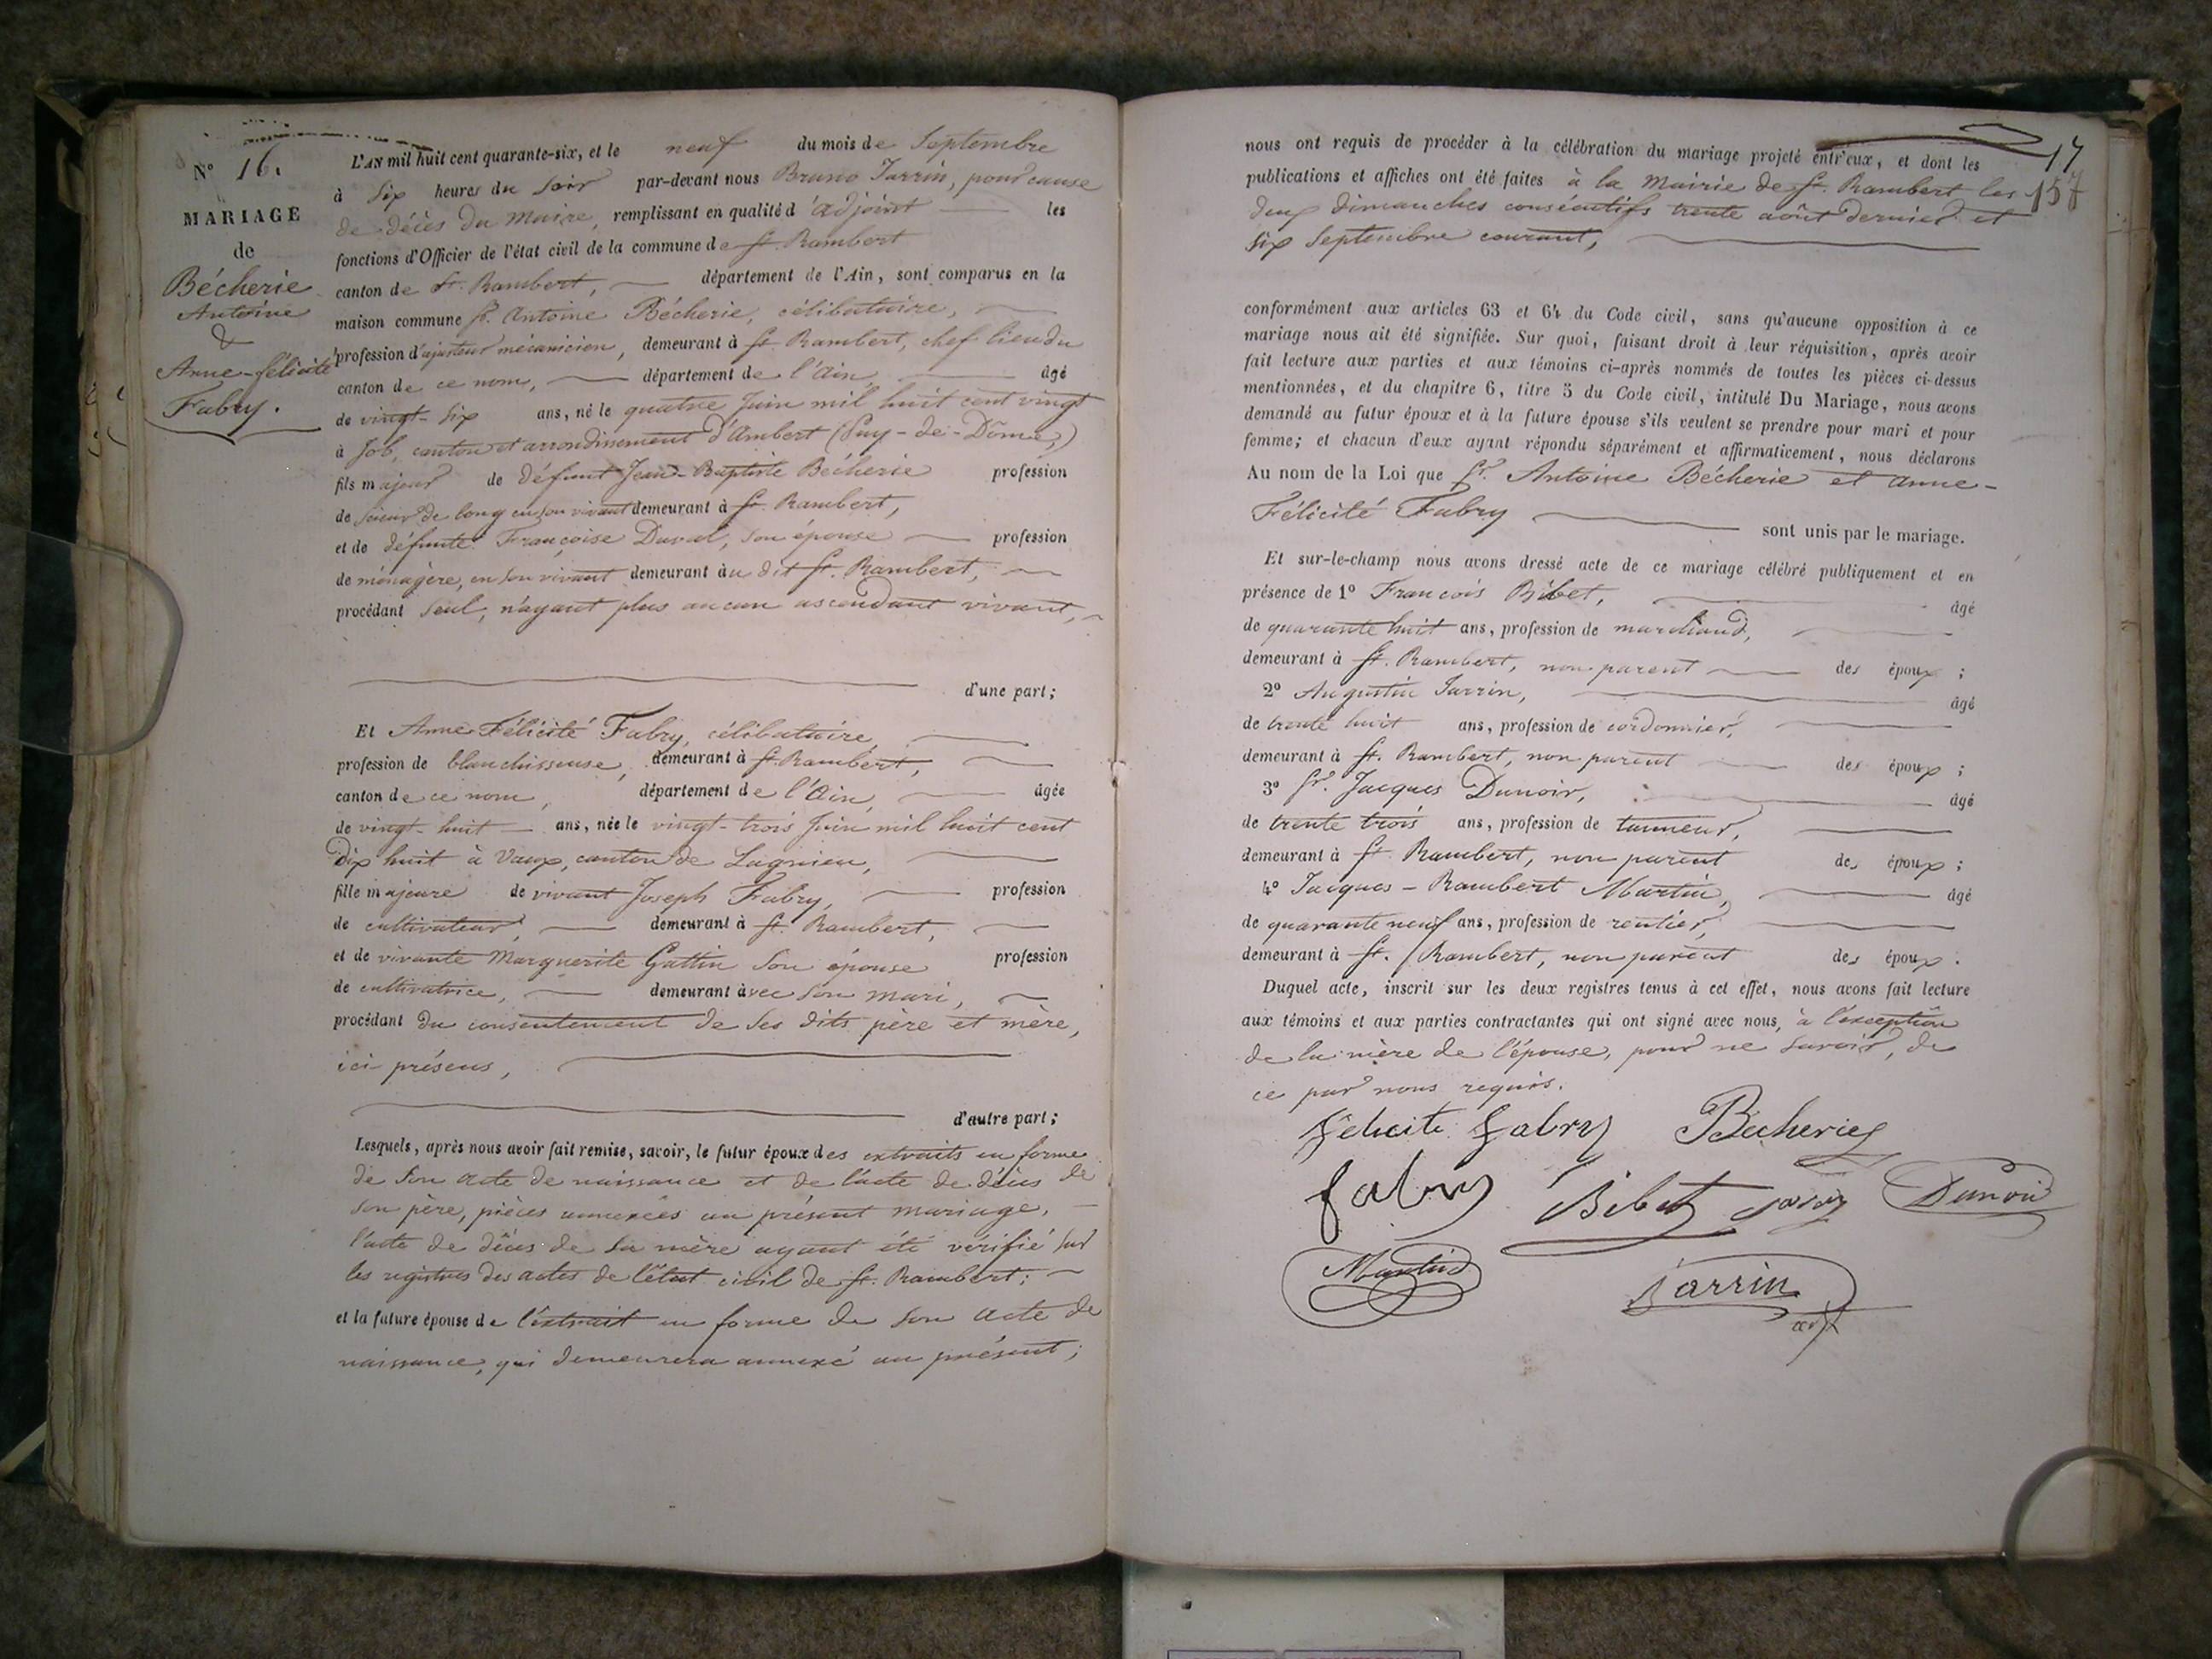 N° 16.
MARIAGE
de
Bécherie
Antoine
&
Anne-félicité
Fabry.
L'AN mil huit cent quarante-six, et le neuf du mois de Septembre
à Six heures du Soir par-devant nous Bruno Jarrin, pour cause
de décès du Maire, remplissant en qualité d'adjoint les
fonctions d'Officier de l'état civil de la commune de St. Rambert
canton de St. Rambert, département de l'Ain, sont comparus en la
maison commune Sr. Antoine Bécherie, célibataire,
profession d'ajusteur mécanicien, demeurant à St Rambert, chef lieu du
canton de ce nom, département de l'Ain âgé
de vingt-six ans, né le quatre Juin mil huit cent vingt
à Job, canton et arrondissement d'Ambert (Puy-de-Dôme,)
fils majeur de défunt Jean-Baptiste Bécherie profession
de scieur de long en son vivant demeurant à St. Rambert,
et de défunte Françoise Duval, son épouse profession
de ménagère, en son vivant demeurant au dit St. Rambert,
procédant Seul, n'ayant plus aucun ascendant vivant,
d'une part;
Et Anne Félicité Fabry, célibataire
profession de blanchisseuse, demeurant à St Rambert,
canton de ce nom, département de l'Ain, âgée
de vingt-huit ans, née le vingt-trois Juin mil huit cent
Dix huit à Vaux, canton de Lagnieu,
fille majeure de vivant Joseph Fabry, profession
de cultivateur, demeurant à St. Rambert,
et de vivante Marguerite Gattin Son épouse profession
de cultivatrice, demeurant avec son mari,
procédant du consentement de Ses dits père et mère,
ici présens,
d'autre part;
Lesquels, après nous avoir fait remise, savoir, le futur époux des extraits en forme
de Son acte de naissance et de l'acte de décès de
Son père, pièces annexées au présent mariage,
l'acte de décès de Sa mère ayant été vérifié sur
les registres des actes de l'état civil de St. Rambert;
et la future épouse de l'extrait en forme de Son acte de
naissance, qui demeurera annexé au présent;
17
157
nous ont requis de procéder à la célébration du mariage projeté entr'eux, et dont les
publications et affiches ont été faites à la Mairie de St. Rambert les
deux dimanches consécutifs trente août dernier et
six Septembre courant,
conformément aux articles 63 et 64 du Code civil, sans qu'aucune opposition à ce
mariage nous ait été signifiée. Sur quoi, faisant droit à leur réquisition, après avoir
fait lecture aux parties et aux témoins ci-après nommés de toutes les pièces ci-dessus
mentionnées, et du chapitre 6, titre 5 du Code civil, intitulé Du Mariage, nous avons
demandé au futur époux et à la future épouse s'ils veulent se prendre pour mari et pour
femme; et chacun d'eux ayant répondu séparément et affirmativement, nous déclarons
Au nom de la Loi que Sr. Antoine Bécherie et Anne-
Félicité Fabry sont unis par le mariage.
Et sur-le-champ nous avons dressé acte de ce mariage célébré publiquement et en
présence de 1° François Bibet, âgé
de quarante huit ans, profession de marchand,
demeurant à St. Rambert, non parent des époux;
2° Augustin Jarrin, âgé
de trente huit ans, profession de cordonnier,
demeurant à St. Rambert, non parent des époux;
3° Sr. Jacques Dunoir, âgé
de trente trois ans, profession de tanneur,
demeurant à St Rambert, non parent des époux;
4° Jacques-Rambert Martin, âgé
de quarante neuf ans, profession de rentier,
demeurant à St. Rambert, non parent des époux.
Duquel acte, inscrit sur les deux registres tenus à cet effet, nous avons fait lecture
aux témoins et aux parties contractantes qui ont signé avec nous, à l'exception
de la mère de l'épouse, pour ne savoir, de
ce par nous requis.
félicité fabry Bécherie
fabry Bibet Dunoir
Martin Jarrin